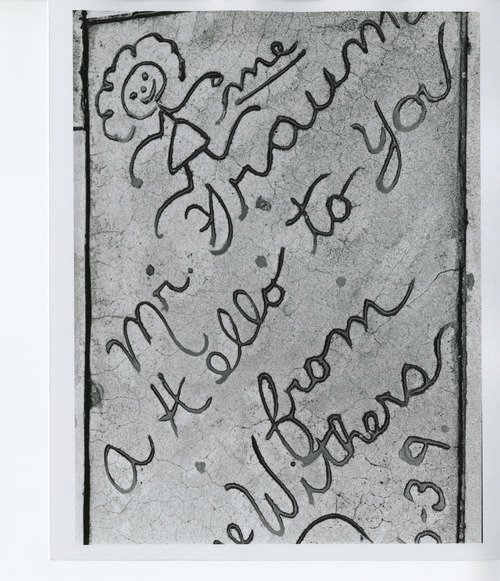 me
Mr. Grauma
a Hello to You
from
e Withers
-39